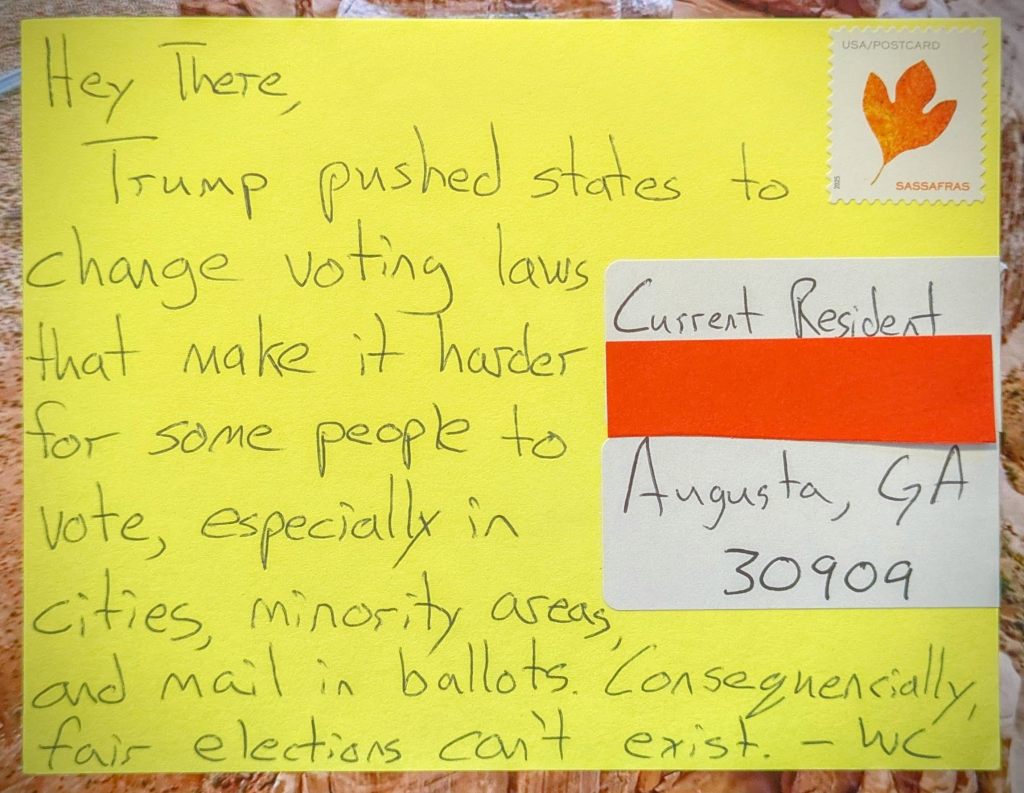 Hey There,
USA/POSTCARD
SASSAFRAS
2025
Trump pushed states to
change voting laws
that make it harder
for some people to
vote, especially in
cities, minority areas,
and mail in ballots. Consequencially,
fair elections can't exist. - WC
Current Resident
Augusta, GA
30909